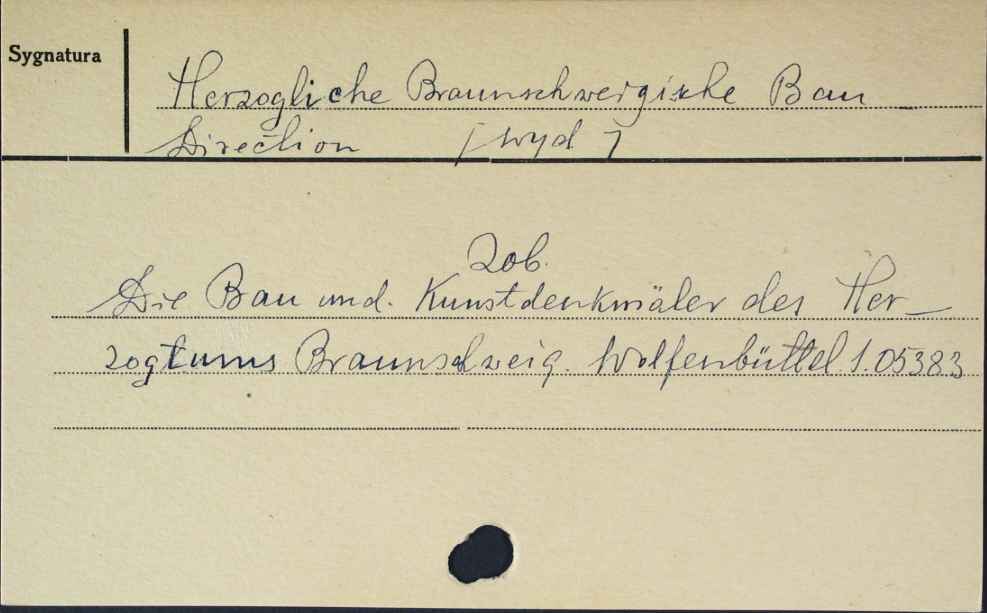 Sygnatura
Herzogliche Braunschweigische Bau
Direction [wyd]
Zob.
Die Bau und. Kunstdenkmäler des Her-
zogtums Braunschweig. Wolfenbüttel 1.05383